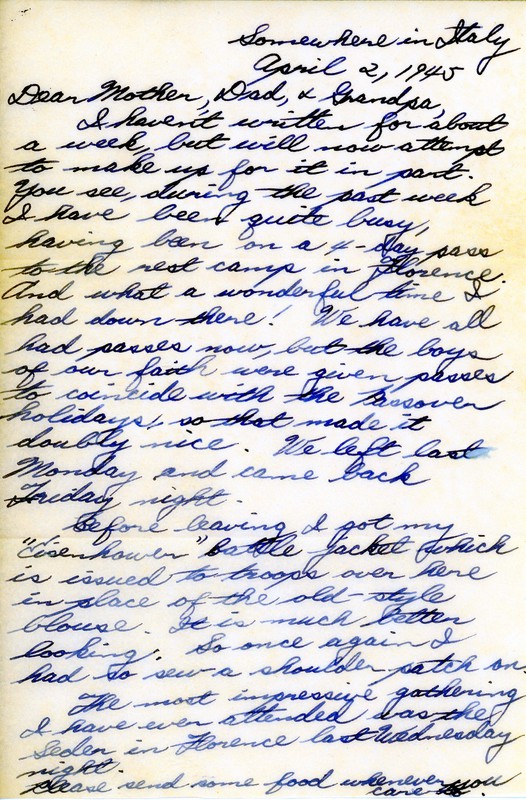 Somewhere in Italy
April 2, 1945
Dear Mother, Dad, & Grandpa,
I haven't written for about
a week, but will now attempt
to make up for it in part.
You see, during the past week
I have been quite busy,
having been on a 4-day pass
to the rest camp in Florence.
And what a wonderful time I
had down there! We have all
had passes now, but the boys
of our faith were given passes
to coincide with the Passover
holidays, so that made it
doubly nice. We left last
Monday and came back
Friday night.
Before leaving I got my
"Eisenhower" battle jacket (which
is issued to troops over here
in place of the old-style
blouse. It is much better
looking. So once again I
had so sew a shoulder patch on.
The most impressive gathering
I have ever attended was the
Seder in Florence last Wednesday
night.
Please send some food whenever you
care to.